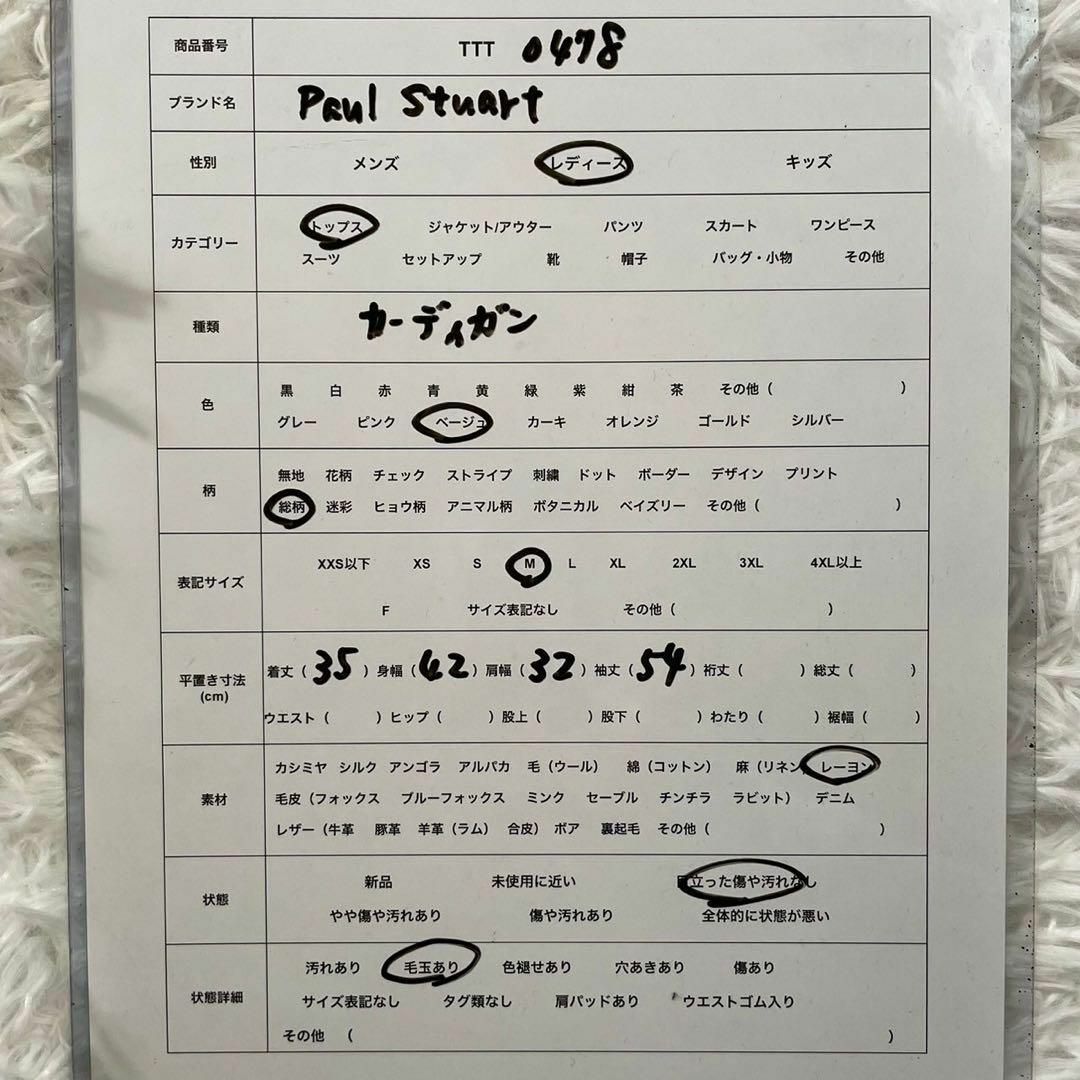 商品番号 TTT 0478
ブランド名 Paul Stuart
性別 メンズ レディース キッズ
カテゴリー トップス ジャケット/アウター パンツ スカート ワンピース
スーツ セットアップ 靴 帽子 バッグ・小物 その他
種類 カーディガン
色 黒 白 赤 青 黄 緑 紫 紺 茶 その他 ( )
グレー ピンク ベージュ カーキ オレンジ ゴールド シルバー
柄 無地 花柄 チェック ストライプ 刺繍 ドット ボーダー デザイン プリント
総柄 迷彩 ヒョウ柄 アニマル柄 ボタニカル ベイズリー その他 ( )
表記サイズ XXS以下 XS S M L XL 2XL 3XL 4XL以上
F サイズ表記なし その他 ( )
平置き寸法 (cm) 着丈 ( 35 ) 身幅 ( 42 ) 肩幅 ( 32 ) 袖丈 ( 54 ) 裄丈 ( ) 総丈 ( )
ウエスト ( ) ヒップ ( ) 股上 ( ) 股下 ( ) わたり ( ) 裾幅 ( )
素材 カシミヤ シルク アンゴラ アルパカ 毛 (ウール) 綿 (コットン) 麻 (リネン) レーヨン
毛皮 (フォックス ブルーフォックス ミンク セーブル チンチラ ラビット) デニム
レザー (牛革 豚革 羊革 (ラム) 合皮) ボア 裏起毛 その他 ( )
状態 新品 未使用に近い 目立った傷や汚れなし
やや傷や汚れあり 傷や汚れあり 全体的に状態が悪い
状態詳細 汚れあり 毛玉あり 色褪せあり 穴あきあり 傷あり
サイズ表記なし タグ類なし 肩パッドあり ウエストゴム入り
その他 ( )